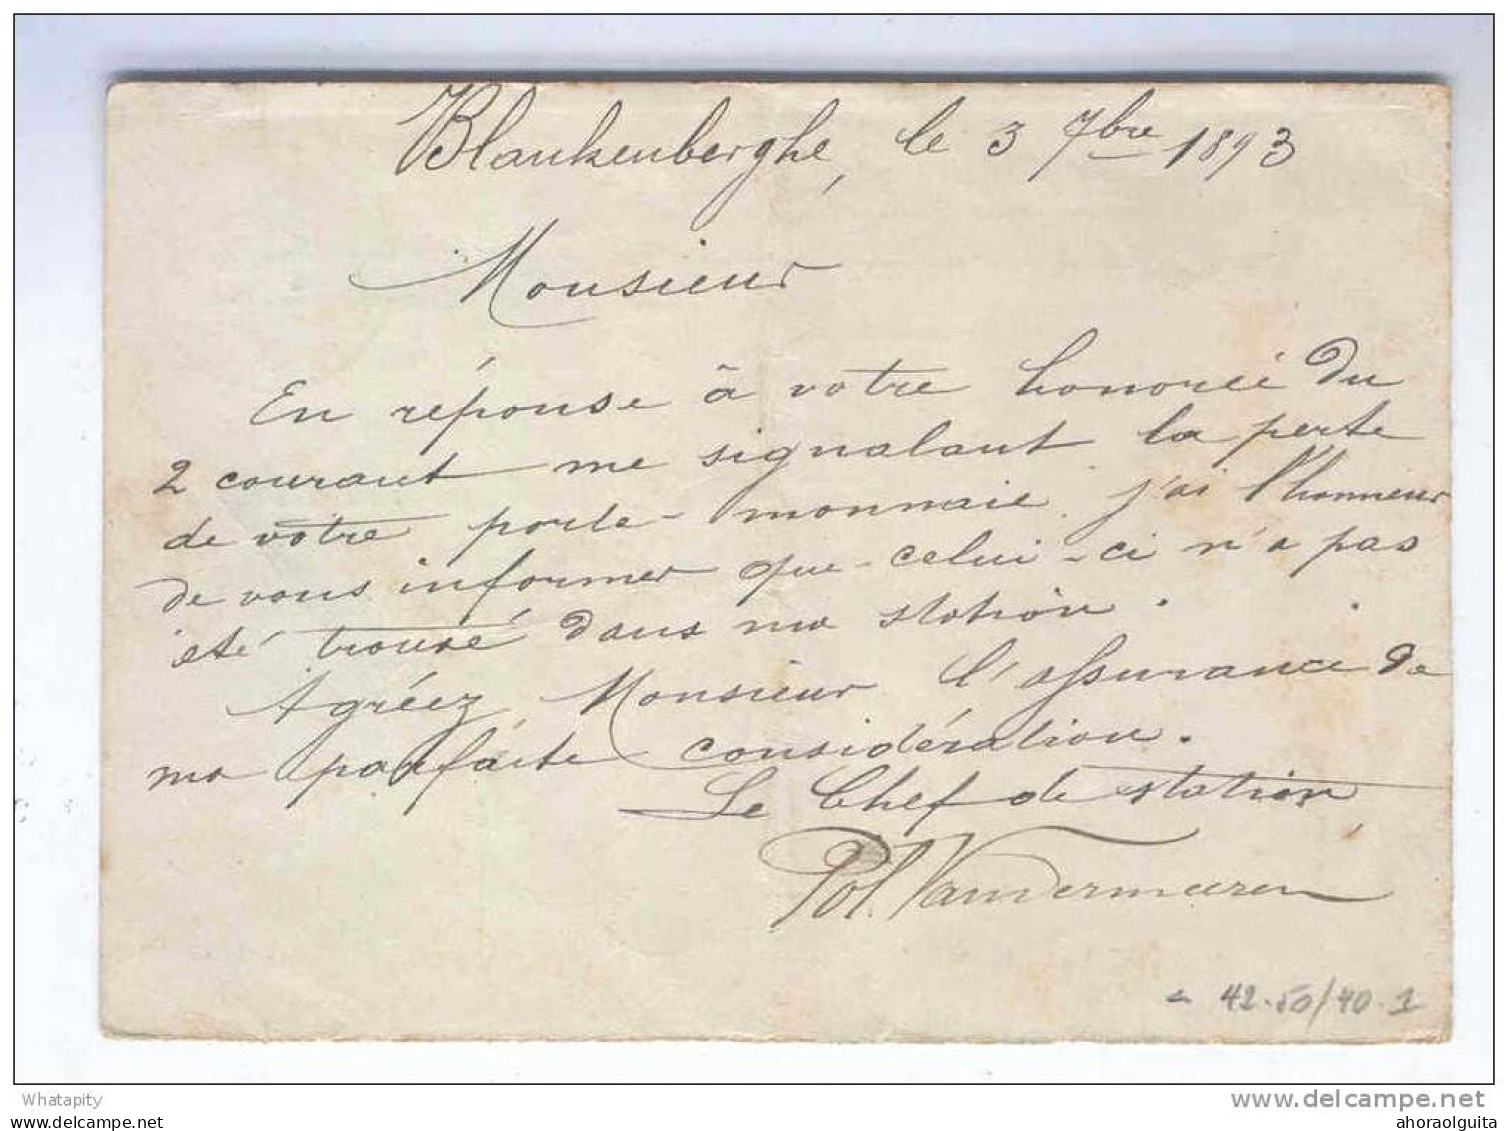 Blankenberghe, le 3 7bre 1893
Monsieur
En réponse à votre honorée du
2 courant me signalant la perte
de votre porte-monnaie, j'ai l'honneur
de vous informer que celui-ci n'a pas
été trouvé dans ma station.
Agréez, Monsieur l'assurance de
ma parfaite considération.
Le Chef de station,
Pol. Vandermeeren
42-50/40-1
Whatapity
www.delcampe.net
ahoraolguita